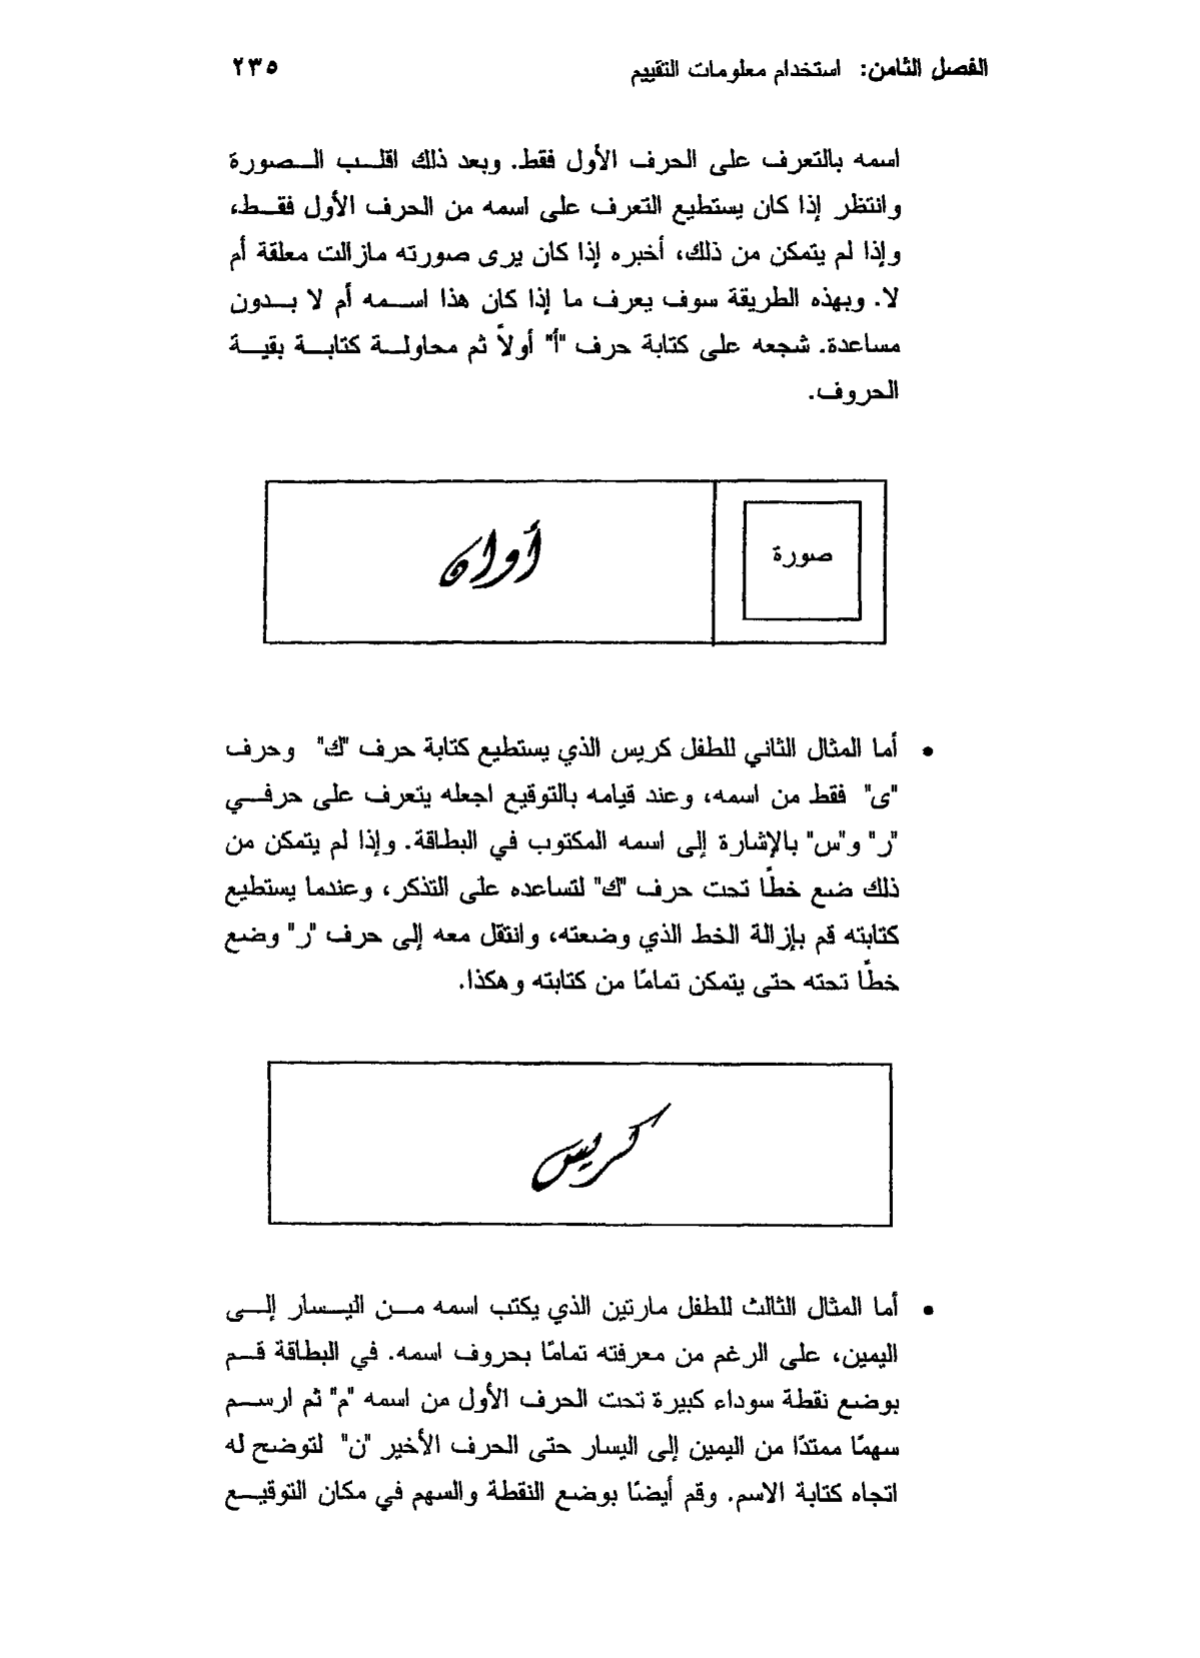 الفصل الثامن: استخدام معلومات التقييم ٢٣٥
اسمه بالتعرف على الحرف الأول فقط. وبعد ذلك اقلب الصورة
وانتظر إذا كان يستطيع التعرف على اسمه من الحرف الأول فقط،
وإذا لم يتمكن من ذلك، أخبره إذا كان يرى صورته مازالت معلقة أم
لا. وبهذه الطريقة سوف يعرف ما إذا كان هذا اسمه أم لا بدون
مساعدة. شجعه على كتابة حرف "أ" أولاً ثم محاولة كتابة بقية
الحروف.
صورة
أوان
• أما المثال الثاني للطفل كريس الذي يستطيع كتابة حرف "ك" وحرف
"ى" فقط من اسمه، وعند قيامه بالتوقيع اجعله يتعرف على حرفي
"ر" و"س" بالإشارة إلى اسمه المكتوب في البطاقة. وإذا لم يتمكن من
ذلك ضع خطًا تحت حرف "ك" لتساعده على التذكر، وعندما يستطيع
كتابته قم بإزالة الخط الذي وضعته، وانتقل معه إلى حرف "ر" وضع
خطًا تحته حتى يتمكن تمامًا من كتابته وهكذا.
كريس
• أما المثال الثالث للطفل مارتين الذي يكتب اسمه من اليسار إلى
اليمين، على الرغم من معرفته تمامًا بحروف اسمه. في البطاقة قم
بوضع نقطة سوداء كبيرة تحت الحرف الأول من اسمه "م" ثم ارسم
سهمًا ممتدًا من اليمين إلى اليسار حتى الحرف الأخير "ن" لتوضح له
اتجاه كتابة الاسم. وقم أيضًا بوضع النقطة والسهم في مكان التوقيع